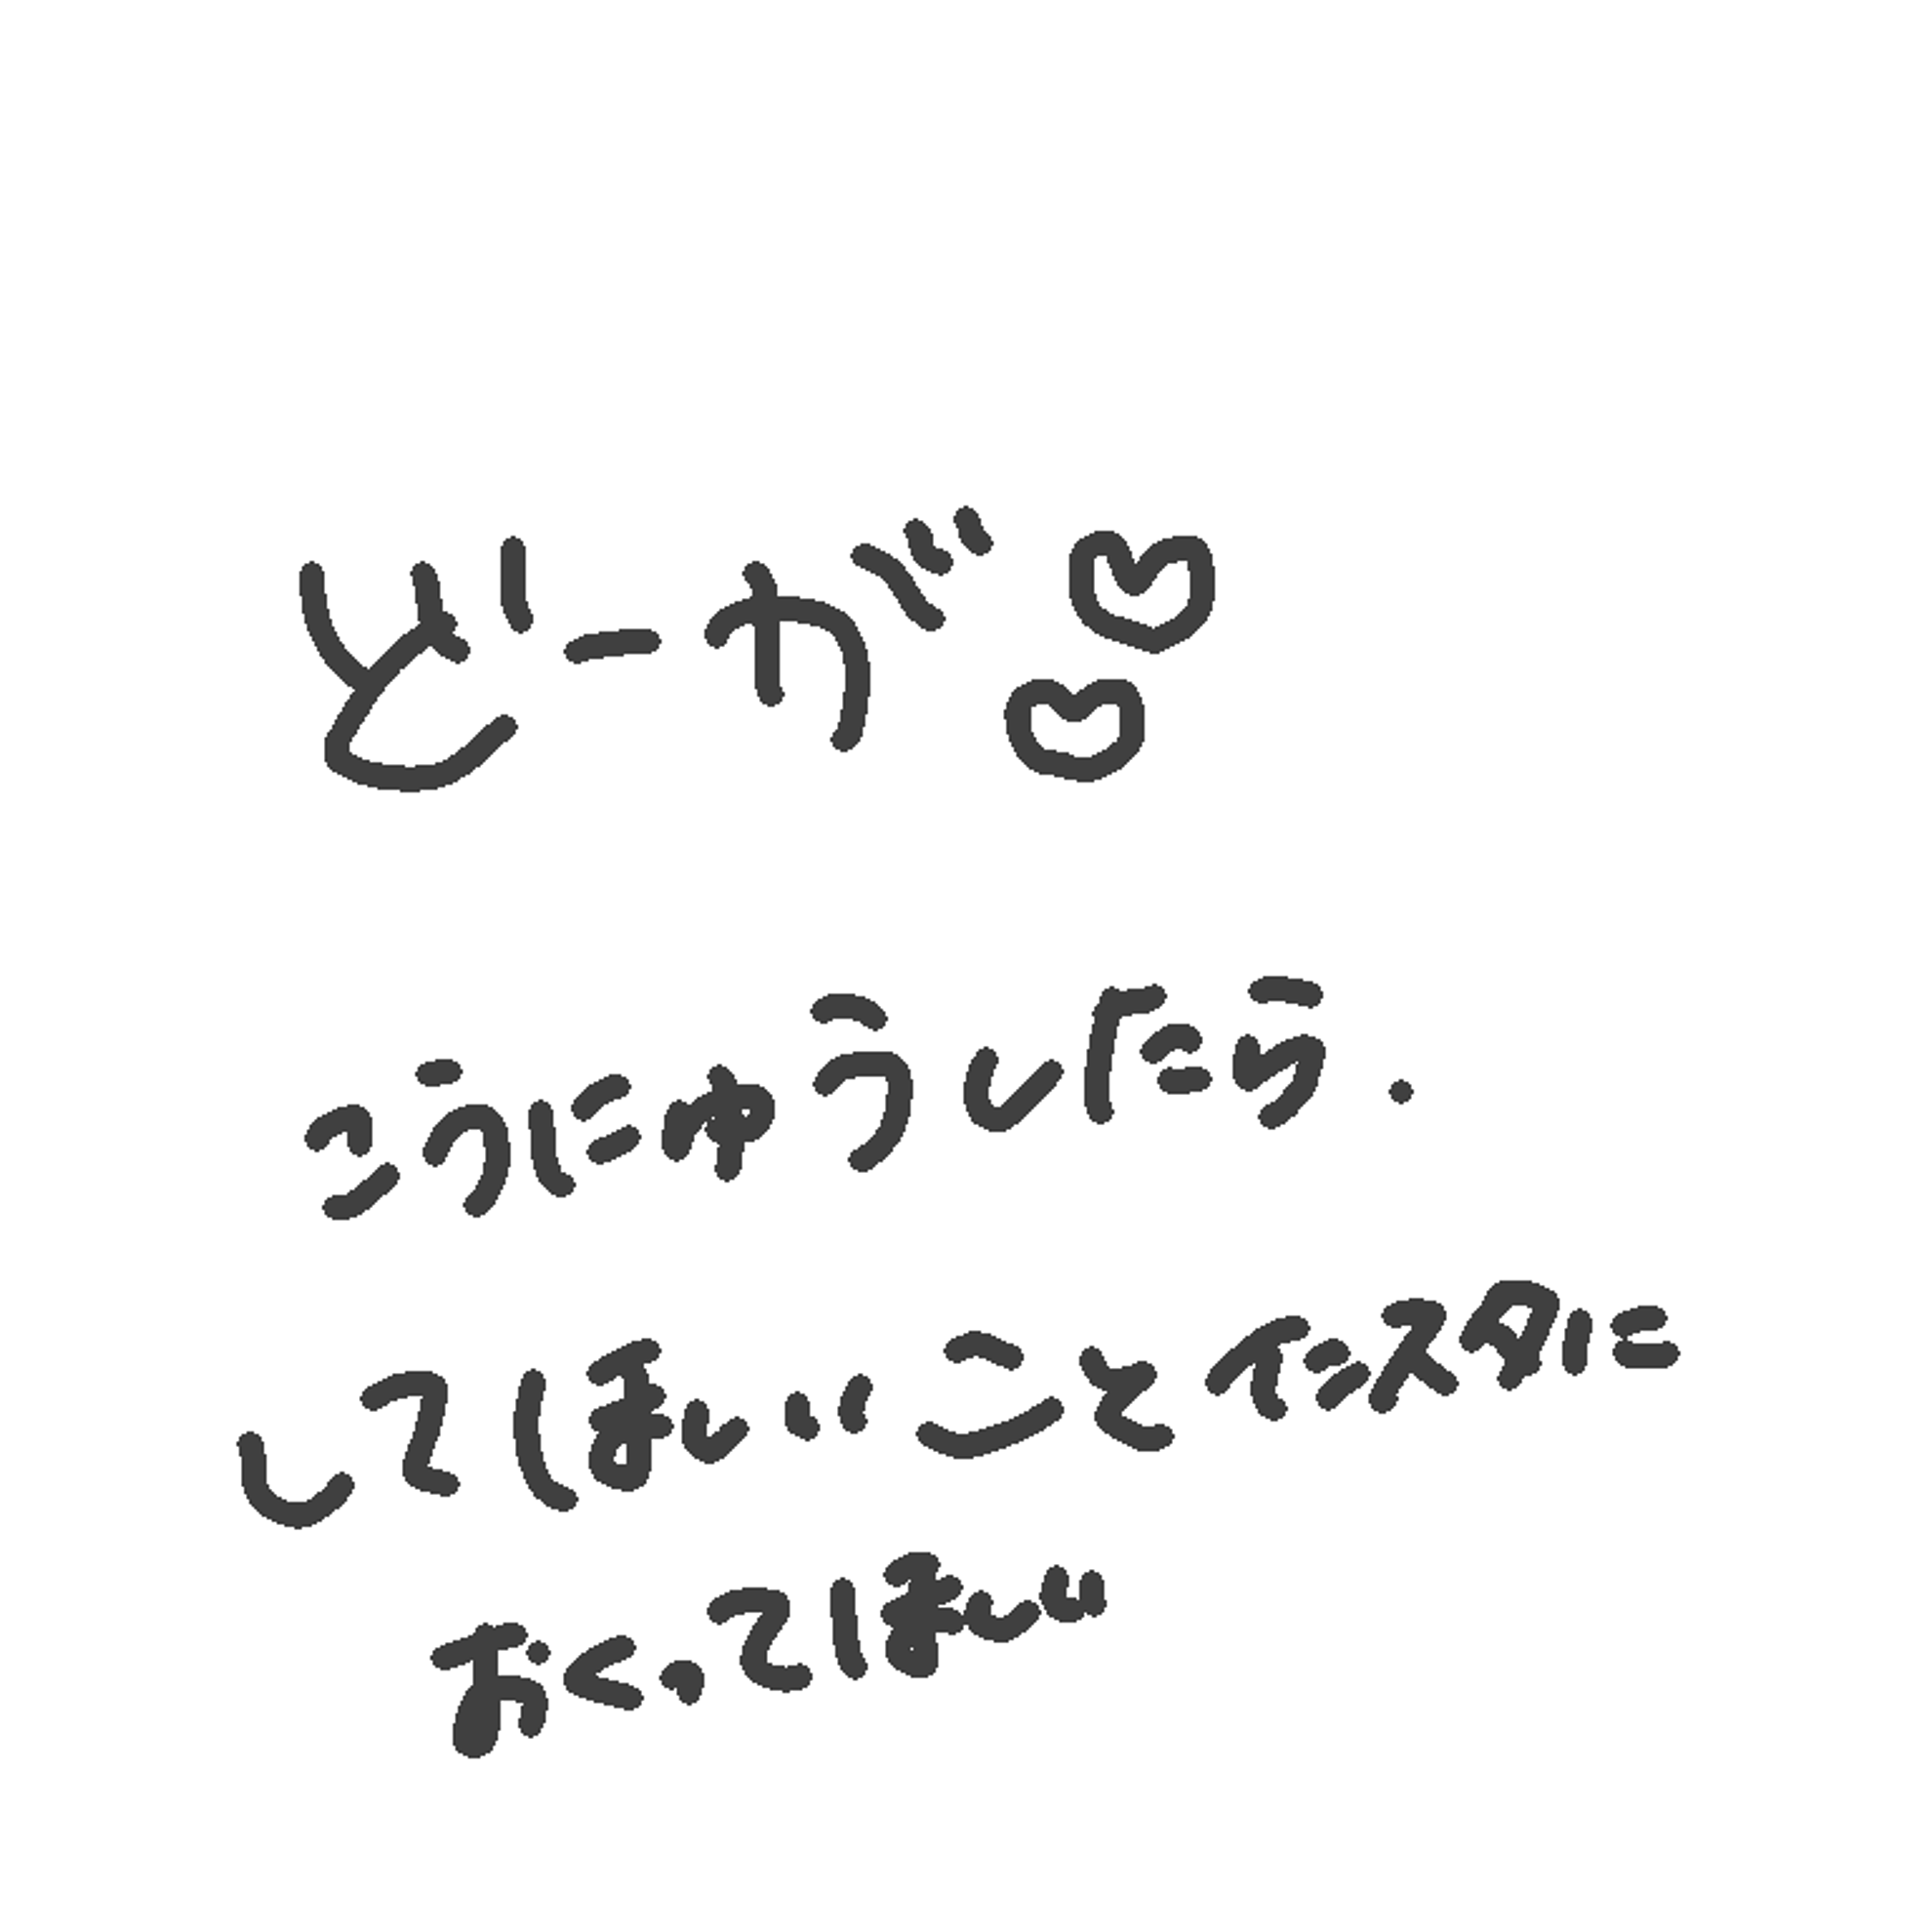 どーが♡♡
こうにゅうしたら.
してほしいことインスタに
おくってほしい